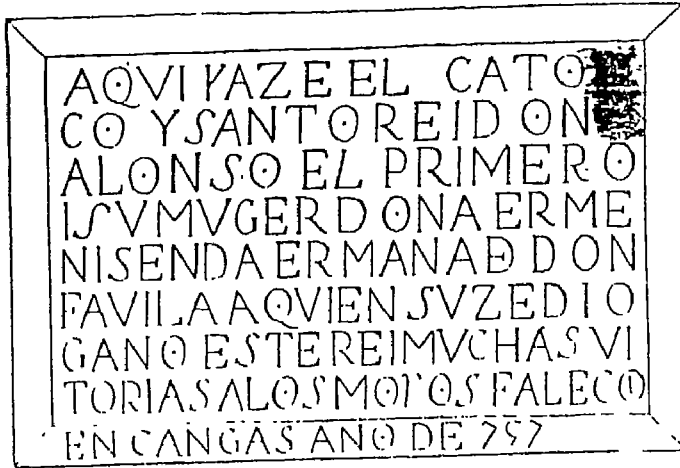 AQVI YAZE EL CATO
CO Y SANTO REI DON
ALONSO EL PRIMERO
I SV MVGER DONA ERME
NISENDA ERMANA DE DON
FAVILA A QVIEN SVZEDIO
GANO ESTE REI MVCHAS VI
TORIAS A LOS MOROS FALECIO
EN CANGAS ANO DE 757